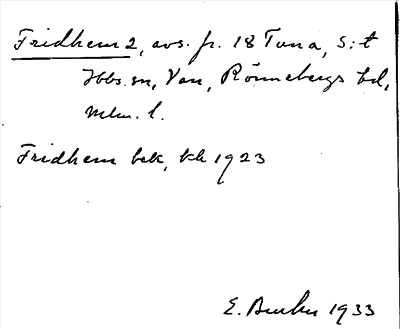 Fridhem 2, avs. fr. 18 Tuna, S:t
Ibbs sn, Ven, Rönnebergs hd,
Mlm. l.
Fridhem bek, kh 1923
E. 1933